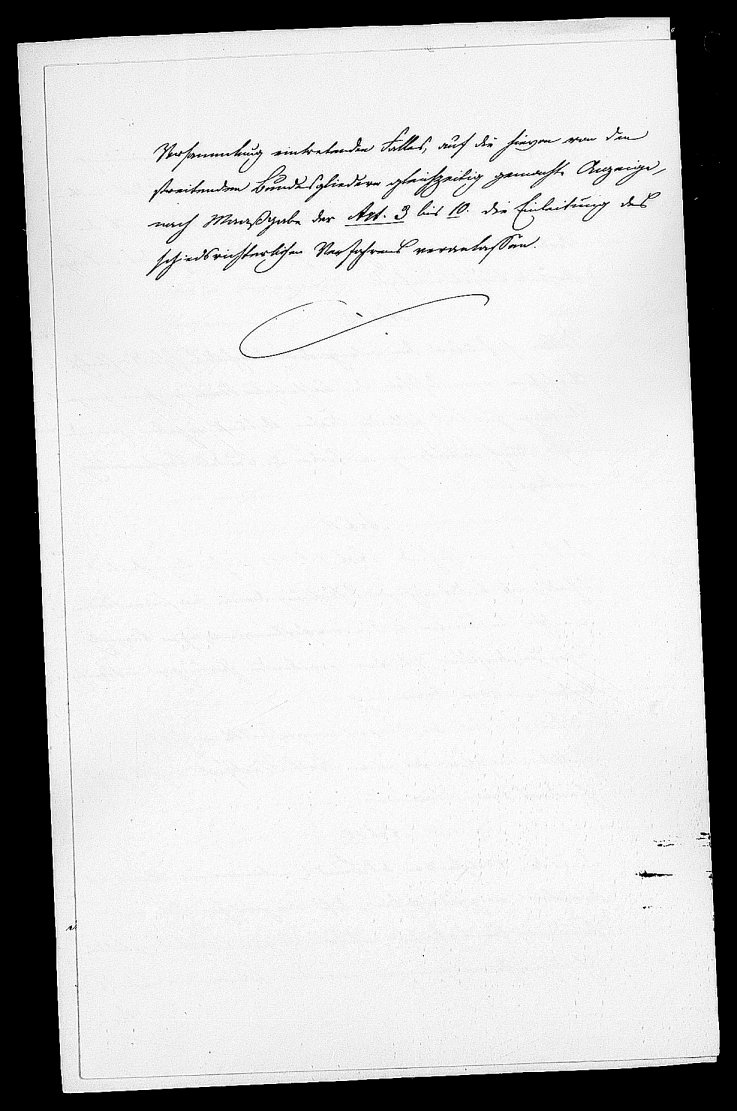 Versammlung eintretenden Falles, auf die hievon von den
streitenden Bundesgliedern gleichzeitig gemachte Anzeige,
nach Maaßgabe der Art. 3 bis 10. die Einleitung des
schiedsrichterlichen Verfahrens veranlassen.